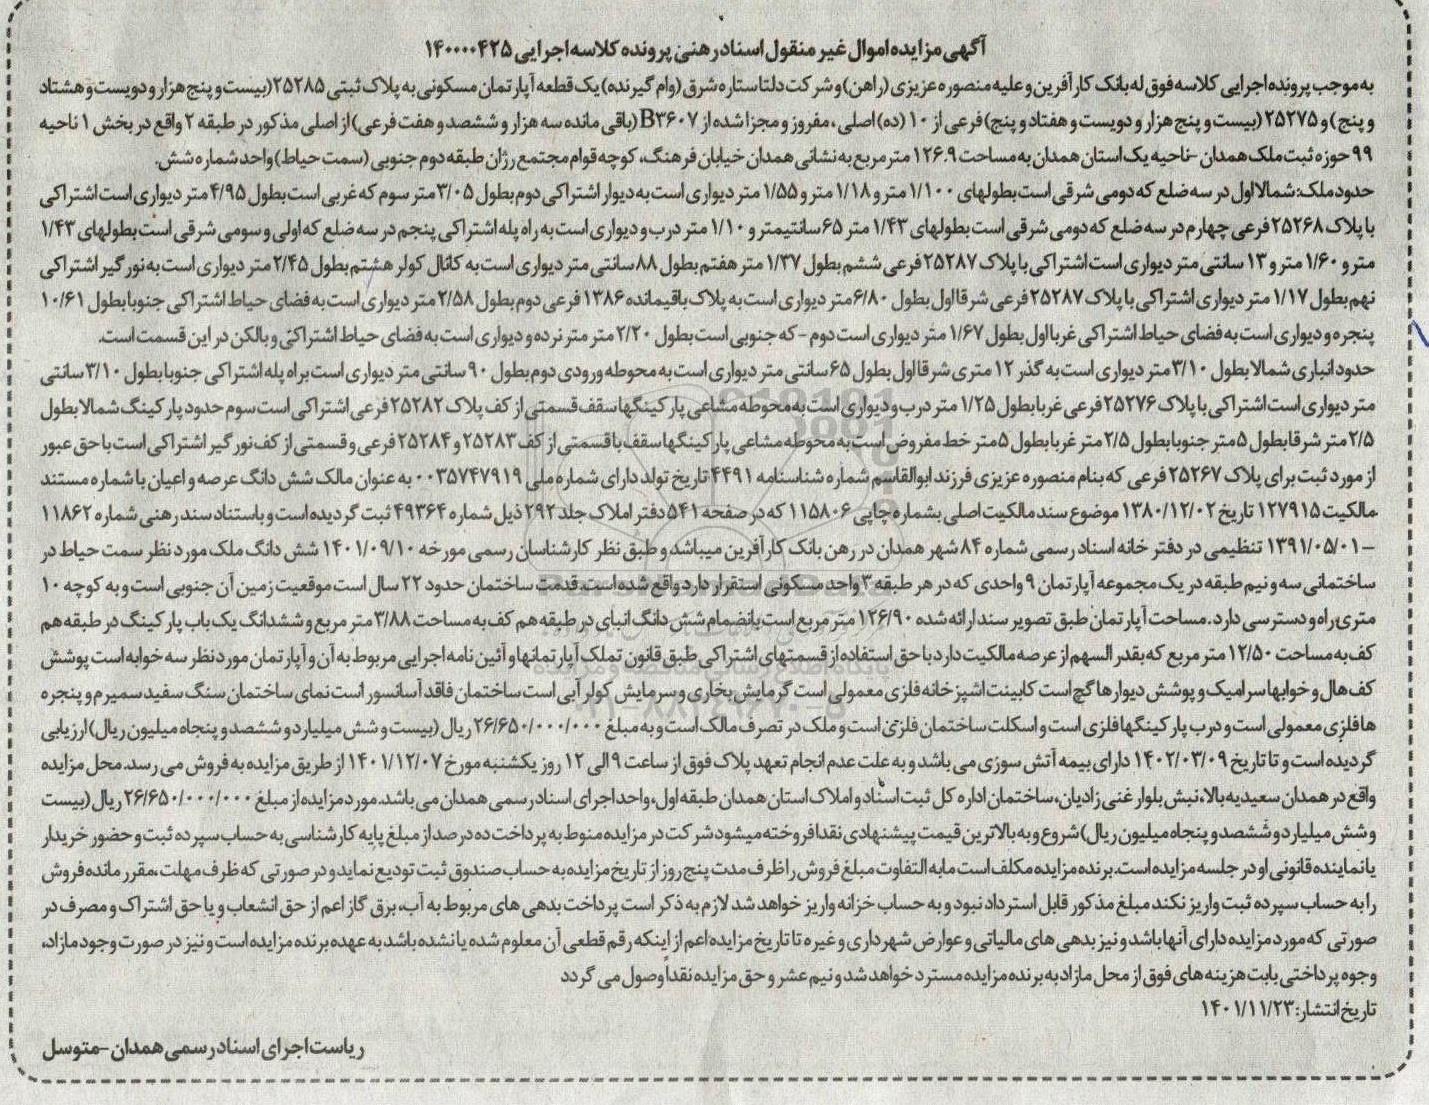 آگهی مزایده اموال غیر منقول اسناد رهنی پرونده کلاسه اجرایی ۱۴۰۰۰۰۴۲۵
به موجب پرونده اجرایی کلاسه فوق له بانک کارآفرین و علیه منصوره عزیزی (راهن) و شرکت دلتا ستاره شرق (وام گیرنده) یک قطعه آپارتمان مسکونی به پلاک ثبتی ۲۵۲۸۵ (بیست و پنج هزار و دویست و هشتاد
و پنج) و ۲۵۲۷۵ (بیست و پنج هزار و دویست و هفتاد و پنج) فرعی از ۱۰ (ده) اصلی، مفروز و مجزا شده از B۳۶۰۷ (باقی مانده سه هزار و ششصد و هفت فرعی) از اصلی مذکور در طبقه ۲ واقع در بخش ۱ ناحیه
۹۹ حوزه ثبت ملک همدان - ناحیه یک استان همدان به مساحت ۱۲۶.۹ متر مربع به نشانی همدان خیابان فرهنگ، کوچه قوام مجتمع رژان طبقه دوم جنوبی (سمت حیاط) واحد شماره شش.
حدود ملک: شمالا اول در سه ضلع که دومی شرقی است بطولهای ۱/۱۰۰ متر و ۱/۱۸ متر و ۱/۵۵ متر دیواری است به دیوار اشتراکی دوم بطول ۳/۰۵ متر سوم که غربی است بطول ۴/۹۵ متر دیواری است اشتراکی
با پلاک ۲۵۲۶۸ فرعی چهارم در سه ضلع که دومی شرقی است بطولهای ۱/۴۳ متر ۶۵ سانتیمتر و ۱/۱۰ متر درب و دیواری است به راه پله اشتراکی پنجم در سه ضلع که اولی و سومی شرقی است بطولهای ۱/۴۳
متر و ۱/۶۰ متر و ۱۳ سانتی متر دیواری است اشتراکی با پلاک ۲۵۲۸۷ فرعی ششم بطول ۱/۳۷ متر هفتم بطول ۸۸ سانتی متر دیواری است به کانال کولر هشتم بطول ۲/۴۵ متر دیواری است به نورگیر اشتراکی
نهم بطول ۱/۱۷ متر دیواری اشتراکی با پلاک ۲۵۲۸۷ فرعی شرقا اول بطول ۶/۸۰ متر دیواری است به پلاک باقیمانده ۱۳۸۶ فرعی دوم بطول ۲/۵۸ متر دیواری است به فضای حیاط اشتراکی جنوبا بطول ۱۰/۶۱
پنجره و دیواری است به فضای حیاط اشتراکی غربا اول بطول ۱/۶۷ متر دیواری است دوم - که جنوبی است بطول ۲/۲۰ متر متر نرده و دیواری است به فضای حیاط اشتراکی و بالکن در این قسمت است.
حدود انباری شمالا بطول ۳/۱۰ متر دیواری است به گذر ۱۲ متری شرقا اول بطول ۶۵ سانتی متر دیواری است به محوطه ورودی دوم بطول ۹۰ سانتی متر دیواری است براه پله اشتراکی جنوبا بطول ۳/۱۰ سانتی
متر دیواری است اشتراکی با پلاک ۲۵۲۷۶ فرعی غربا بطول ۱/۲۵ متر درب و دیواری است به محوطه مشاعی پارکینگها سقف قسمتی از کف پلاک ۲۵۲۸۲ فرعی اشتراکی است سوم حدود پارکینگ شمالا بطول
۲/۵ متر شرقا بطول ۵ متر جنوبا بطول ۲/۵ متر غربا بطول ۵ متر خط مفروض است به محوطه مشاعی پارکینگها سقف با قسمتی از کف ۲۵۲۸۳ و ۲۵۲۸۴ فرعی و قسمتی از کف نورگیر اشتراکی است با حق عبور
از مورد ثبت برای پلاک ۲۵۲۶۷ فرعی که بنام منصوره عزیزی فرزند ابوالقاسم شماره شناسنامه ۴۴۹۱ تاریخ تولد دارای شماره ملی ۰۰۳۵۷۴۷۹۱۹ به عنوان مالک شش دانگ عرصه و اعیان با شماره مستند
مالکیت ۱۲۷۹۱۵ تاریخ ۱۳۸۰/۱۲/۰۲ موضوع سند مالکیت اصلی بشماره چاپی ۱۱۵۸۰۶ که در صفحه ۵۴۱ دفتر املاک جلد ۲۹۲ ذیل شماره ۴۹۳۶۴ ثبت گردیده است و باستناد سند رهنی شماره ۱۱۸۶۲
- ۱۳۹۱/۰۵/۰۱ تنظیمی در دفتر خانه اسناد رسمی شماره ۸۴ شهر همدان در رهن بانک کارآفرین میباشد و طبق نظر کارشناسان رسمی مورخه ۱۴۰۱/۰۹/۱۰ شش دانگ ملک مورد نظر سمت حیاط در
ساختمانی سه و نیم طبقه در یک مجموعه آپارتمان ۹ واحدی که در هر طبقه ۳ واحد مسکونی استقرار دارد واقع شده است. قدمت ساختمان حدود ۲۲ سال است موقعیت زمین آن جنوبی است و به کوچه ۱۰
متری راه و دسترسی دارد. مساحت آپارتمان طبق تصویر سند ارائه شده ۱۲۶/۹۰ متر مربع است بانضمام شش دانگ انباری در طبقه هم کف به مساحت ۳/۸۸ متر مربع و ششدانگ یک باب پارکینگ در طبقه هم
کف به مساحت ۱۲/۵۰ متر مربع که بقدر السهم از عرصه مالکیت دارد با حق استفاده از قسمتهای اشتراکی طبق قانون تملک آپارتمانها و آئین نامه اجرایی مربوط به آن و آپارتمان مورد نظر سه خوابه است پوشش
کف هال و خوابها سرامیک و پوشش دیوارها گچ است کابینت اشپزخانه فلزی معمولی است گرمایش بخاری و سرمایش کولر آبی است ساختمان فاقد آسانسور است نمای ساختمان سنگ سفید سمیرم و پنجره
ها فلزی معمولی است و درب پارکینگها فلزی است و اسکلت ساختمان فلزی است و ملک در تصرف مالک است و به مبلغ ۲۶/۶۵۰/۰۰۰/۰۰۰ ریال (بیست و شش میلیارد و ششصد و پنجاه میلیون ریال) ارزیابی
گردیده است و تا تاریخ ۱۴۰۲/۰۳/۰۹ دارای بیمه آتش سوزی می باشد و به علت عدم انجام تعهد پلاک فوق از ساعت ۹ الی ۱۲ روز یکشنبه مورخ ۱۴۰۱/۱۲/۰۷ از طریق مزایده به فروش می رسد. محل مزایده
واقع در همدان سعیدیه بالا، نبش بلوار غنی زادیان، ساختمان اداره کل ثبت اسناد و املاک استان همدان طبقه اول، واحد اجرای اسناد رسمی همدان می باشد. مورد مزایده از مبلغ ۲۶/۶۵۰/۰۰۰/۰۰۰ ریال (بیست
و شش میلیارد و ششصد و پنجاه میلیون ریال) شروع و به بالاترین قیمت پیشنهادی نقدا فروخته میشود شرکت در مزایده منوط به پرداخت ده درصد از مبلغ پایه کارشناسی به حساب سپرده ثبت و حضور خریدار
یا نماینده قانونی او در جلسه مزایده است. برنده مزایده مکلف است مابه التفاوت مبلغ فروش را ظرف مدت پنج روز از تاریخ مزایده به حساب صندوق ثبت تودیع نماید و در صورتی که ظرف مهلت مقرر مانده فروش
را به حساب سپرده ثبت واریز نکند مبلغ مذکور قابل استرداد نبود و به حساب خزانه واریز خواهد شد لازم به ذکر است پرداخت بدهی های مربوط به آب، برق گاز اعم از حق انشعاب و یا حق اشتراک و مصرف در
صورتی که مورد مزایده دارای آنها باشد و نیز بدهی های مالیاتی و عوارض شهرداری و غیره تا تاریخ مزایده اعم از اینکه رقم قطعی آن معلوم شده یا نشده باشد به عهده برنده مزایده است و نیز در صورت وجود مازاد،
وجوه پرداختی بابت هزینه های فوق از محل مازاد به برنده مزایده مسترد خواهد شد و نیم عشر و حق مزایده نقداً وصول می گردد
تاریخ انتشار: ۱۴۰۱/۱۱/۲۳
ریاست اجرای اسناد رسمی همدان - متوسل